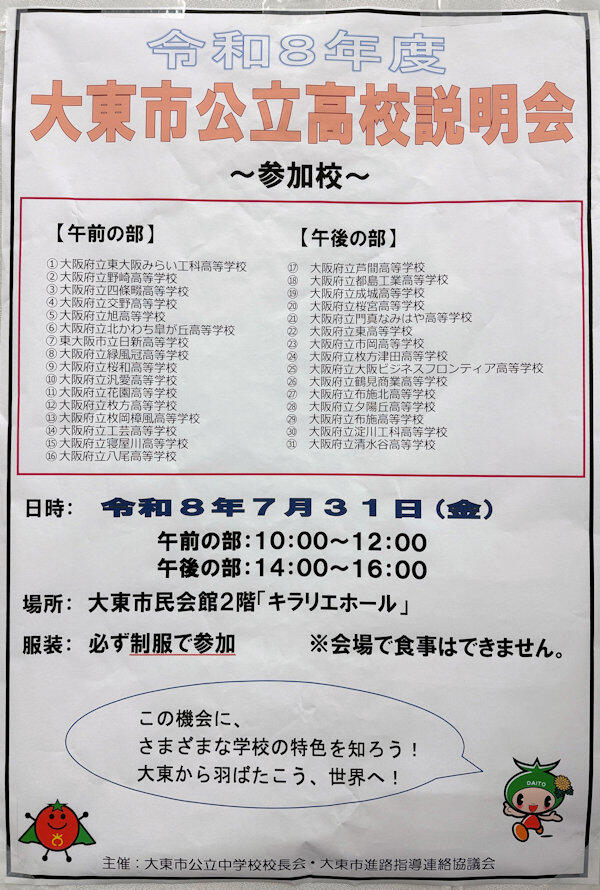 令和8年度
大東市公立高校説明会
～参加校～
【午前の部】
①大阪府立東大阪みらい工科高等学校
②大阪府立野崎高等学校
③大阪府立四條畷高等学校
④大阪府立交野高等学校
⑤大阪府立旭高等学校
⑥大阪府立北かわち皐が丘高等学校
⑦東大阪市立日新高等学校
⑧大阪府立緑風冠高等学校
⑨大阪府立桜和高等学校
⑩大阪府立汎愛高等学校
⑪大阪府立花園高等学校
⑫大阪府立枚方高等学校
⑬大阪府立枚岡樟風高等学校
⑭大阪府立工芸高等学校
⑮大阪府立寝屋川高等学校
⑯大阪府立八尾高等学校
【午後の部】
⑰ 大阪府立芦間高等学校
⑱ 大阪府立都島工業高等学校
⑲ 大阪府立成城高等学校
⑳ 大阪府立桜宮高等学校
㉑ 大阪府立門真なみはや高等学校
㉒ 大阪府立東高等学校
㉓ 大阪府立市岡高等学校
㉔ 大阪府立枚方津田高等学校
㉕ 大阪府立大阪ビジネスフロンティア高等学校
㉖ 大阪府立鶴見商業高等学校
㉗ 大阪府立布施北高等学校
㉘ 大阪府立夕陽丘高等学校
㉙ 大阪府立布施高等学校
㉚ 大阪府立淀川工科高等学校
㉛ 大阪府立清水谷高等学校
日時： 令和8年7月31日(金)
午前の部：10：00～12：00
午後の部：14：00～16：00
場所： 大東市民会館2階「キラリエホール」
服装： 必ず制服で参加 ※会場で食事はできません。
この機会に、
さまざまな学校の特色を知ろう！
大東から羽ばたこう、世界へ！
DAITO
主催：大東市公立中学校校長会・大東市進路指導連絡協議会